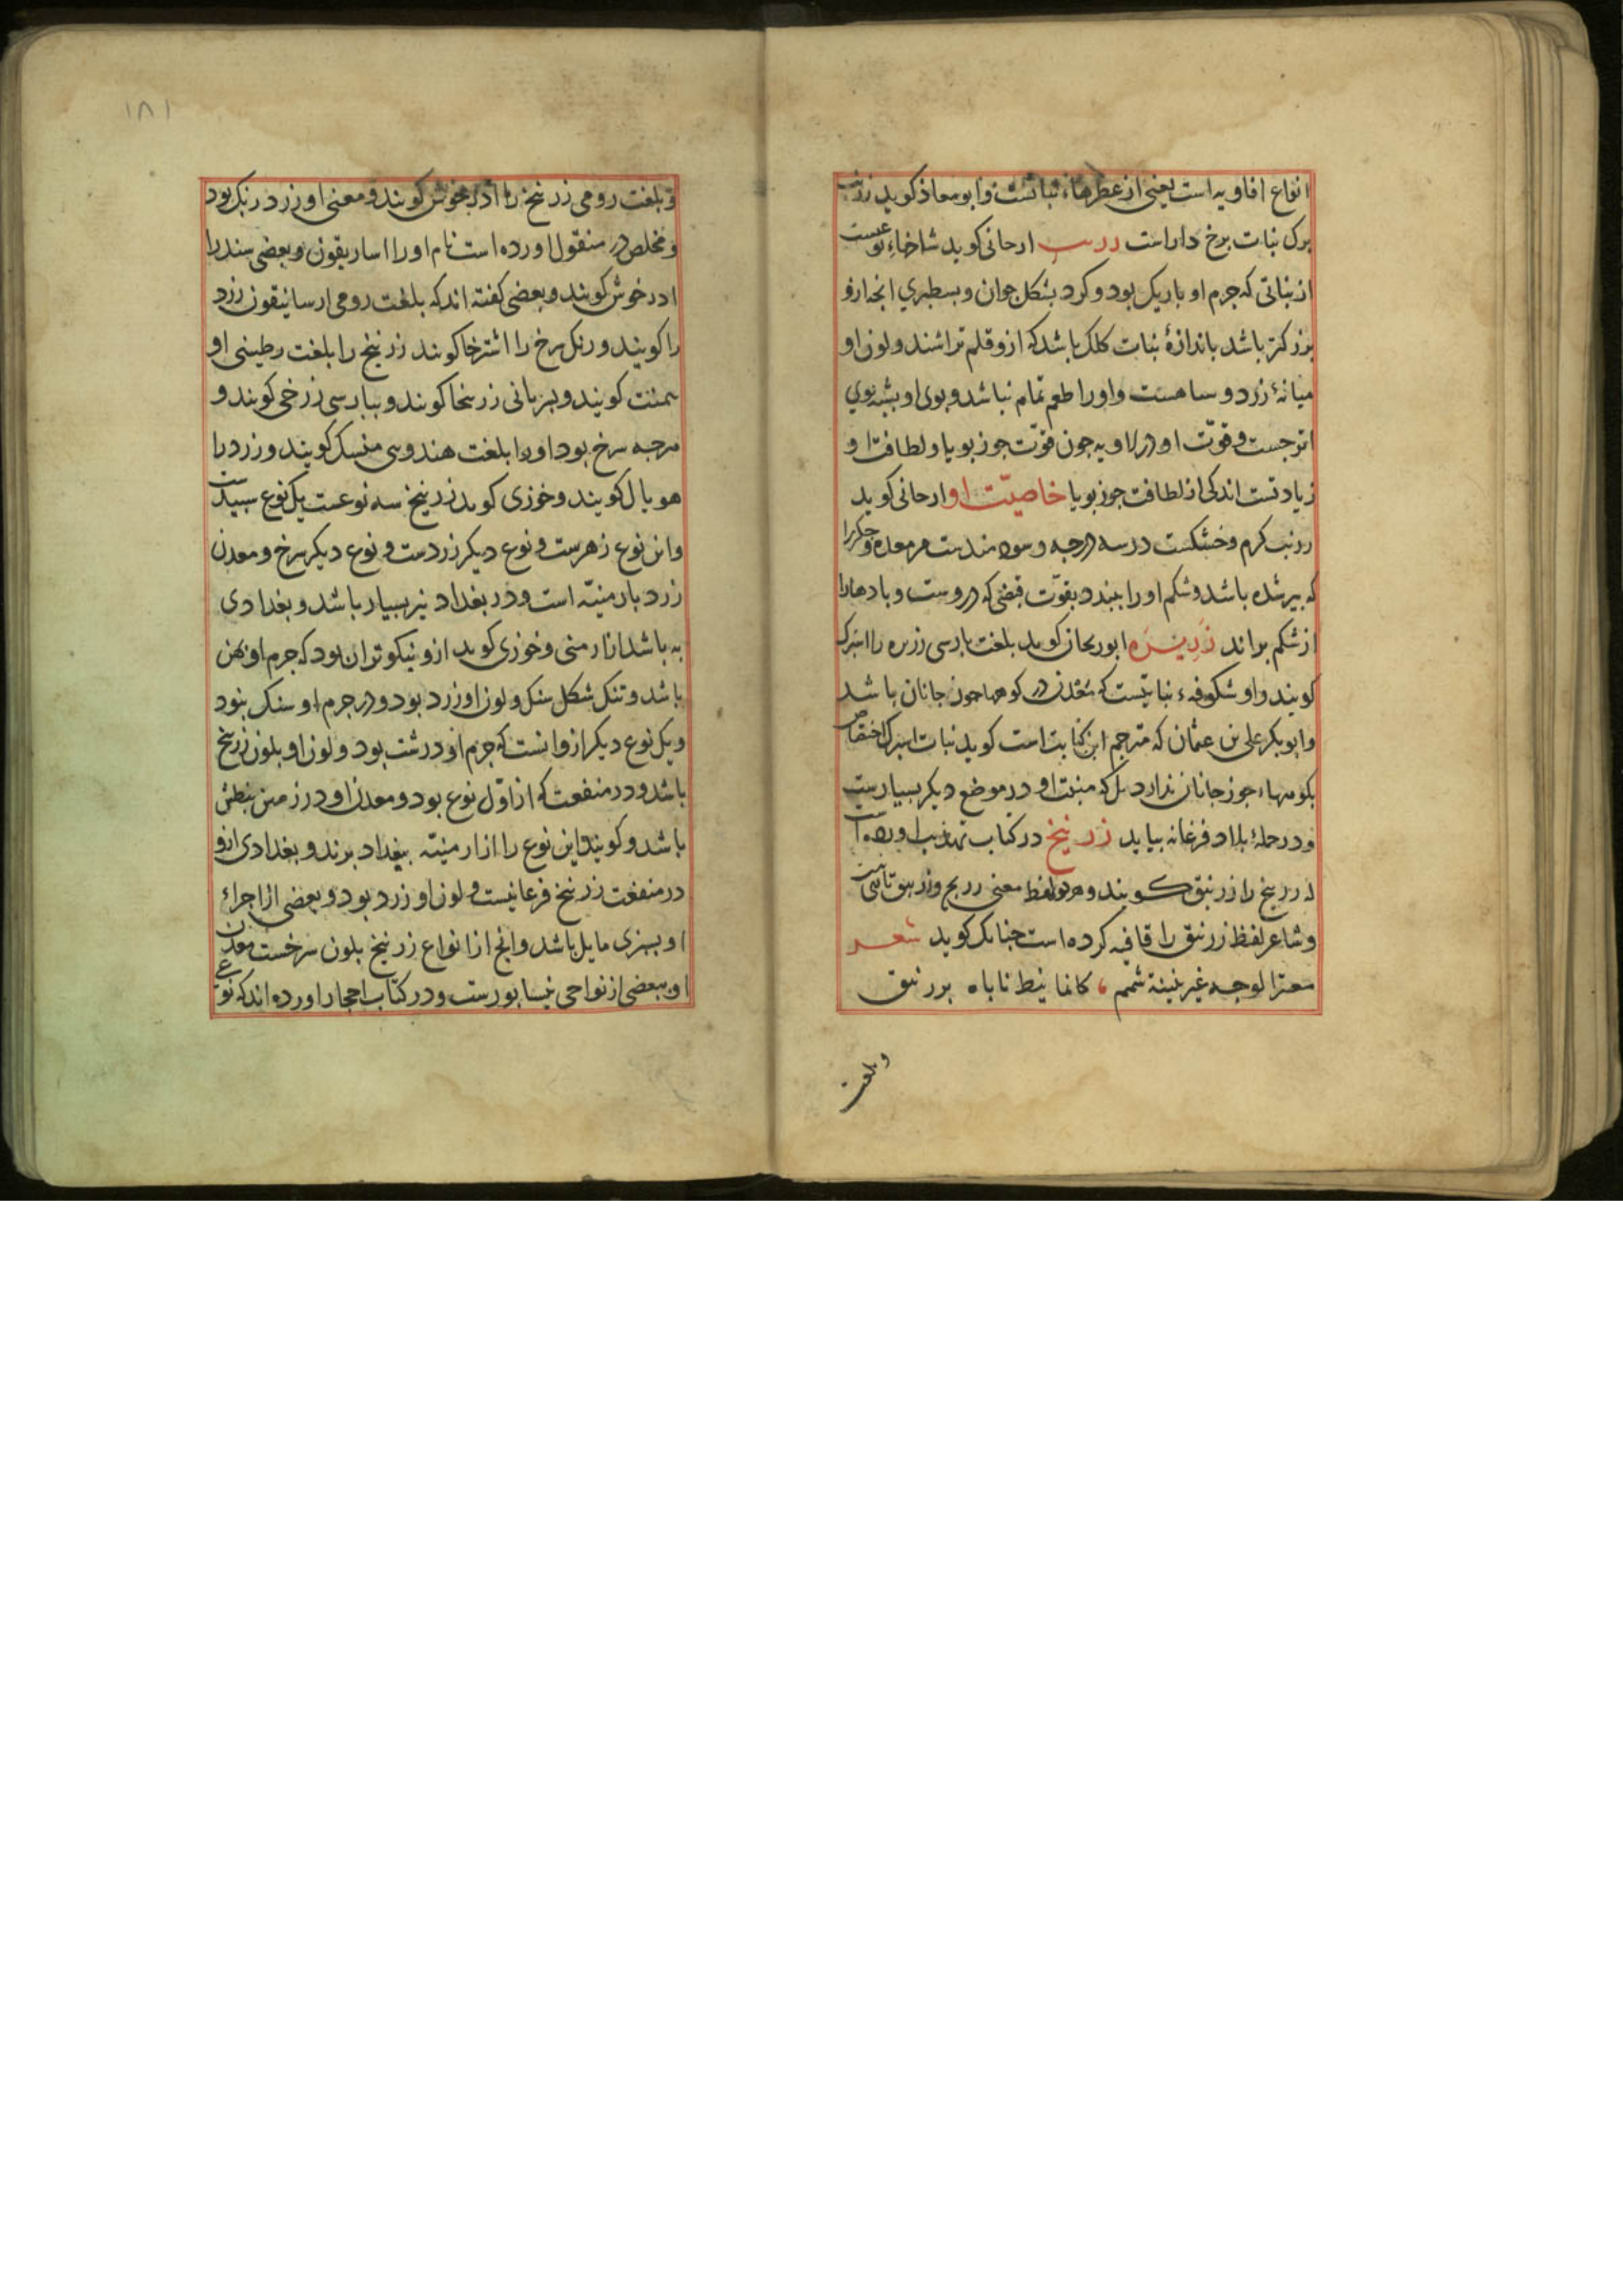 انواع افاویه است یعنی از عطرهاء نباتست و ابو معاذ کوید زرنب
برک نبات برخ دار است زرنب ارجانی کوید شاخهاء نوعیست
از نباتی که جرم او باریک بود و کرد بشکل جوان و بسطبری انجه ازو
بزرکتر باشد باندازهٔ نبات کلک باشد که ازو قلم تراشند و لون او
میانهٔ زرد و سیاهست و او را طعم تمام نباشد و بوی او بشبه بوی
اترجست و قوّت او در ادویه جون قوّت جوز بویا و لطافت او
زیادتست اندکی از لطافت جوز بویا خاصیّت او ارجانی کوید
زرنب کرم و خشکست در سه درجه و سودمندست مر معده و جکر را
که بیر شده باشد و شکم او را ببندد بقوّت قبضی که دروست و بادها را
از شکم براند زریره ابوریحان کوید بلغت بارسی زریره را اسبرک
کویند و او شکوفهء نباتیست که معدن در کوهها جوزجانان باشد
و ابو بکر علی بن عثمان که مترجم این کتابت است کوید نبات اسبرک اختصاص
بکوهها جوزجانان ندارد بل که منبت او در موضع دیکر بسیارست
و در جملهٔ بلاد فرغانه بیاید زرنیخ در کتاب تهذیب اورده است
که زرنیخ را زرنیق کویند و هر دو لفظ معنی زرنیخ و زرنیق تاسست
و شاعر لفظ زرنیق را قافیه کرده است جنانک کوید شعر
معتر الوجه غیر شمم ، کانما نیط ناباه بزرنیق
وبلغت
۱۸۱
و بلغت رومی زرنیخ را ادرخوش کویند و معنی او زرد رنک بود
و مخلص در منقول اورده است نام او را اساریقون و بعضی سند را
ادرخوش کویند و بعضی کفته اند که بلغت رومی ارسانیقون زرد
را کویند و رنک سرخ را اشترخا کویند زرنیخ را بلغت رطینی او
سمنت کویند و بسریانی زرنخا کویند و ببارسی زرخی کویند و
هرجه سرخ بود او را بلغت هندوی منسک کویند و زرد را
هوبال کویند و خوزی کوید زرنیخ سه نوعست یک نوع سبیدست
و این نوع زهرست و نوع دیکر زردست و نوع دیکر سرخ و معدن
زرد بارمنیّه است و در بغداد نیز بسیار باشد و بغدادی
به باشد از ارمنی و خوزی کوید ازو نیکوتر ان بود که جرم او بهن
باشد و تنک شکل سنک و لون او زرد بود و در جرم او سنک نبود
و یک نوع دیکر ازو انست که جرم او درشت بود و لون او بلون زرنیخ
باشد و در منفعت که از اوّل نوع بود و معدن او در زمین ببطن
باشد و کویند این نوع را از ارمنیّه ببغداد برند و بغدادی ازو
در منفعت زرنیخ فرغانیست و لون او زرد بود و بعضی از اجزاء
او بسبزی مایل باشد و انج از انواع زرنیخ بلون سرخست معدن
او ببعضی از نواحی نیسابورست و در کتاب احجار اورده اند که نوع